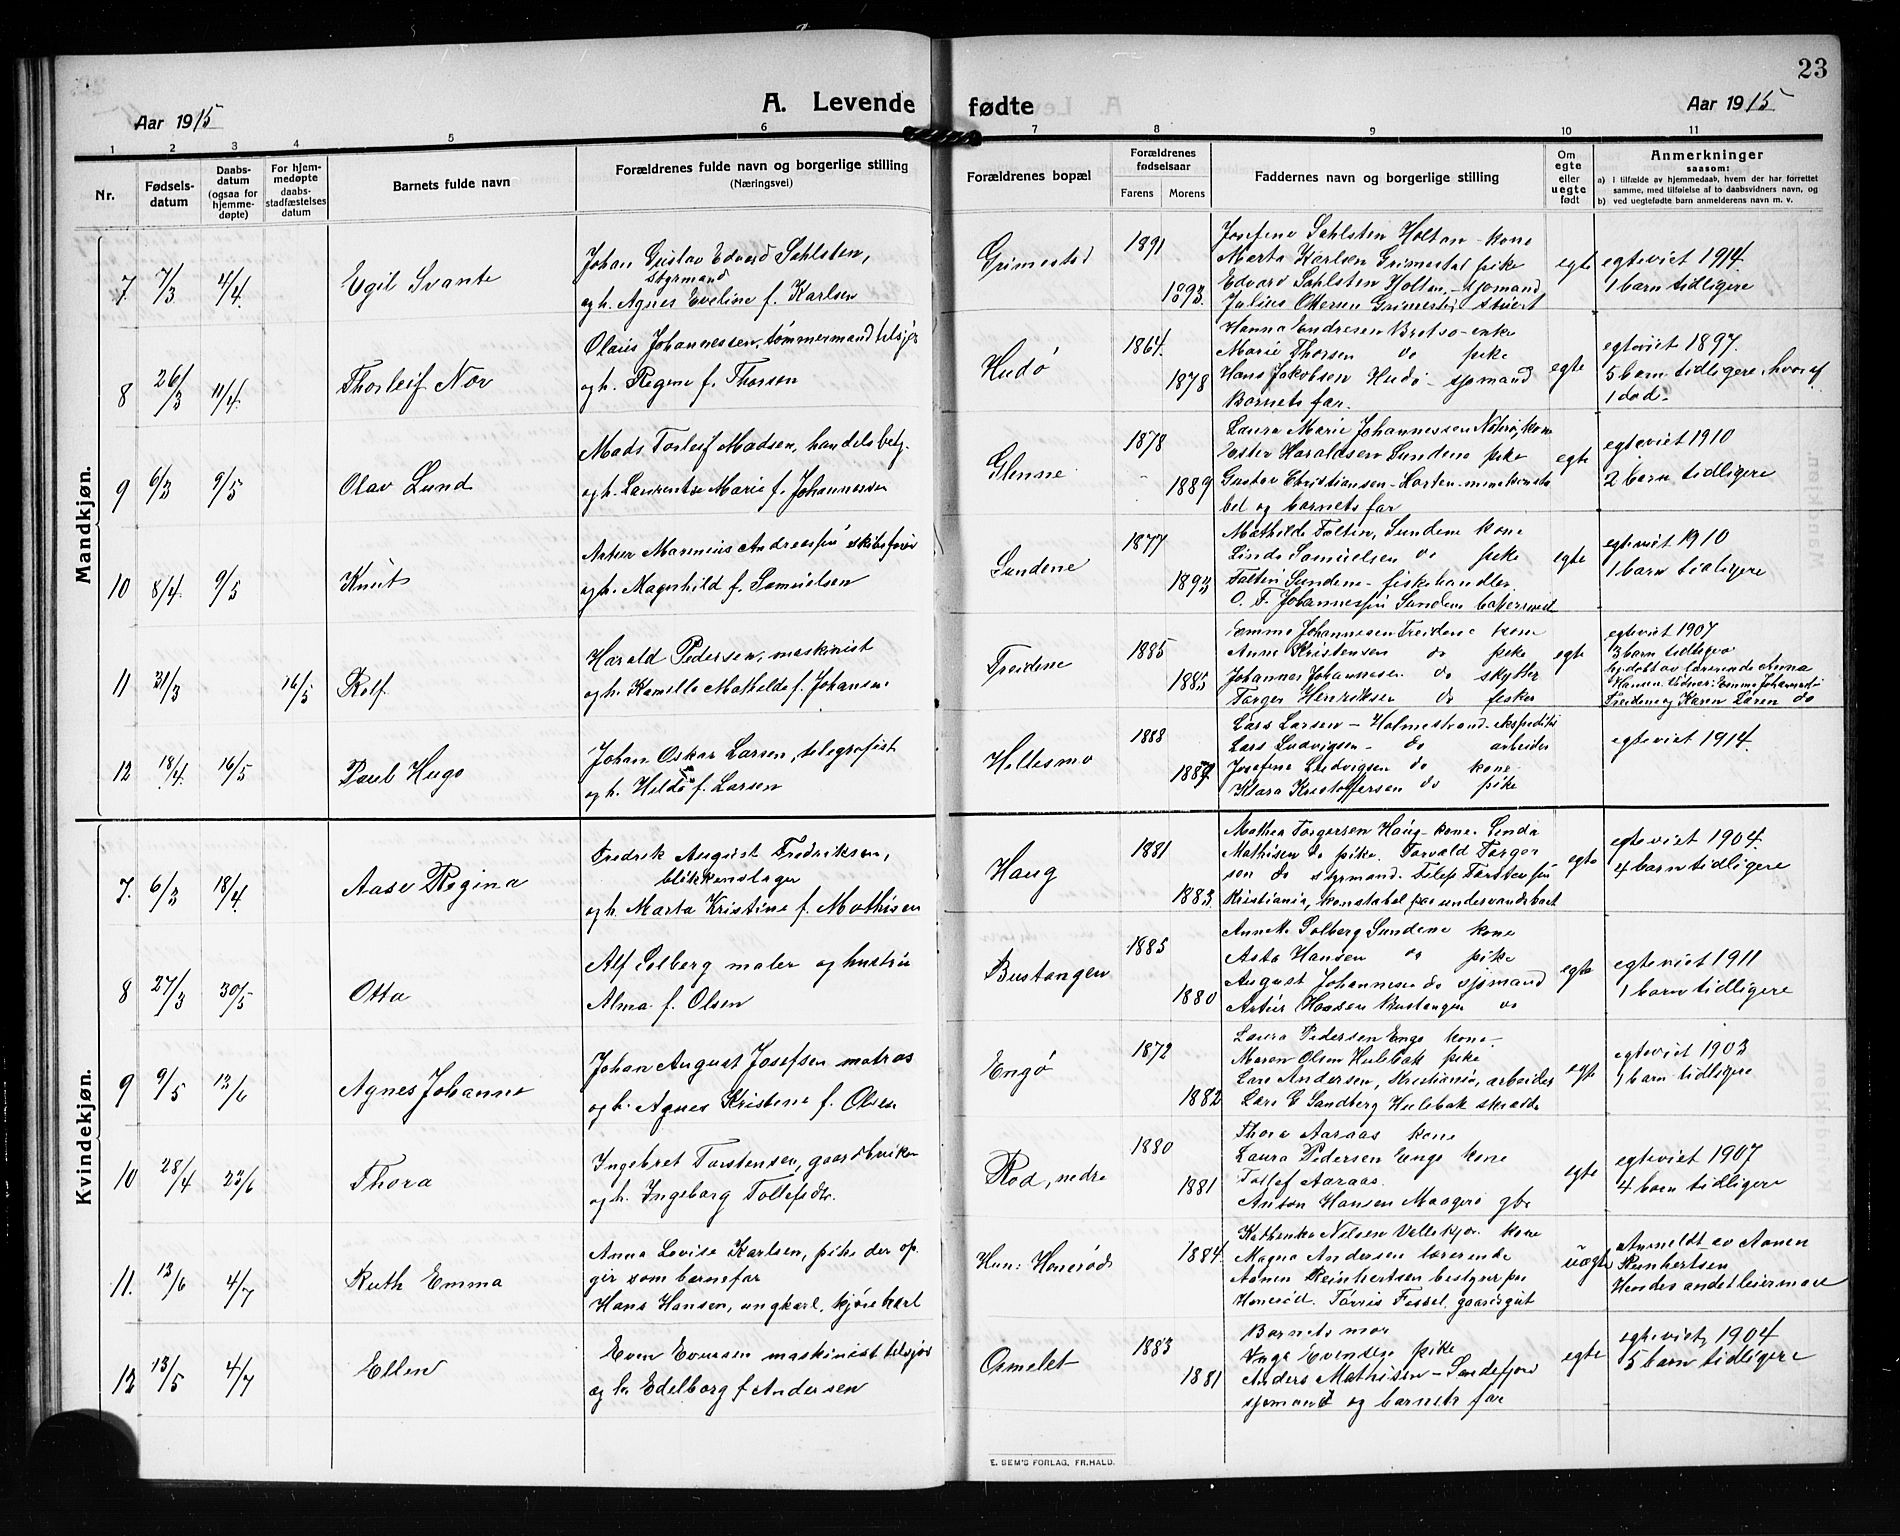 23
A. Levende fødte
Aar 1915
Aar 1915
1 2 3 4 5 6 7 8 9 10 11
Nr.
Fødsels-
datum
Daabs-
datum
(ogsaa for
hjemme-
døpte)
For hjem-
medøpte
daabs-
stadfæstelses
datum
Barnets fulde navn
Forældrenes fulde navn og borgerlige stilling
(Næringsvei)
Forældrenes bopæl
Forældrenes
fødselsaar
Farens Morens
Faddernes navn og borgerlige stilling
Om
egte
eller
uegte
født
Anmerkninger
saasom:
a) i tilfælde av hjemmedaab, hvem der har forrettet
samme, med tilføielse af to daabsvidners navn, og
b) ved uegtefødte barn anmelderens navn m. v.
Mandkjøn.
7 7/3 4/4 Egil Svante
Johan Gustav Edvard Sahlsten,
styrmand
og h. Agnes Eveline f. Karlsen
Grimestad 1891 1893
Josefine Sahlsten Holtan - kone
Marta Karlsen Grimestad pike
Edvard Sahlsten Holtan - sjømand
Julius Ottersen Grimestad stuert
egte
egteviet 1914.
1 barn tidligere
8 26/3 11/4 Thorleif Nor
Olaus Johannessen, tømmermand tilsjøs
og h. Regine f. Thorsen
Hudø 1864. 1878
Hanna Andresen Bretsø - enke
Marie Thorsen do pike
Hans Jakobsen Hudø - sjømand
Barnets far.
egte
egteviet 1897.
5 barn tidligere, hvoraf
1 død.
9 6/3 9/5 Olav Lund
Mads Torleif Madsen, handelsbetj.
og h. Laurentse Marie f. Johannessen
Glenne 1878 1889
Laura Marie Johannessen Nøterø, kone
Ester Haraldsen Sundene pike
Gustav Christiansen - Horten - minekonsta
bel og barnets far
egte
egteviet 1910
2 barn tidligere
10 8/4 9/5 Knut
Artur Marinius Andreassen skibsfører
og h. Magnhild f. Samuelsen
Sundene 1877 1893
Mathilde Foltin, Sundene kone
Linda Samuelsen do pike
Foltin Sundene - fiskehandler
O. F. Johannessen Sundene
egte
egteviet 1910
1 barn tidligere
11 31/3 16/5 Rolf
Harald Pedersen, maskinist
og h. Kamilla Mathilde f. Johansen
Treidene 1885 1885
Emma Johannesen Treidene kone
Anna Kristensen do pike
Johannes Johannesen do skytter
Torger Henriksen do fisker
egte
egteviet 1907
3 barn tidligere
hj. døbt av lærerinde Anna
Hansen. Vidner: Emma Johannesen
Treidene og Karen Laren do
12 18/4 16/5 Paul Hugo
Johan Oskar Larsen, telegrafist
og h. Hilda f. Larsen
Hellesmo 1888 1889
Lars Larsen - Holmestrand - ekspeditør
Lars Ludvigsen - do arbeider
Josefine Ludvigsen do kone
Klara Kristoffersen do pike
egteviet 1914.
Kvindekjøn.
7. 6/3 18/4 Aase Regina
Fredrik August Fredriksen,
blikkenslager
og h. Marta Kristine f. Mathisen
Haug 1881 1883
Mathea Torgersen Haug - kone. Linda
Mathisen do pike. Torvald Torger
sen do styrmand. Filip Torstensen
Kristiania, konstabel paa undervandsbaat
egte
egteviet 1904.
4 barn tidligere
8 27/3 30/5 Otto
Alf Solberg maler og hustru
Alma f. Olsen
Bustangen 1885 1880
Anna M. Solberg Sundene kone
Asta Hansen do pike
August Johannesen do sjømand
Artur Hansen Bustangen do
egte
egteviet 1911
1 barn tidligere
9 9/5 13/6 Agnes Johanne
Johan August Josefsen matros
og h. Agnes Kristine f. Olsen
Engø 1872 1882
Laura Pedersen Engø kone -
Maren Olsen Hulebak pike
Lars Andersen, Kristiania, arbeider
Lars G Sandberg Hulebak skrædder
egte
egteviet 1903
1 barn tidligere
10 28/4 23/6 Thora
Ingebret Torstensen, gaardbruker
og h. Ingeborg Tollefsdtr.
Rød, nedre 1880 1881
Thora Aaraas kone
Laura Pedersen Engø kone
Tollef Aaraas
Anton Hansen Maagerø gbr
egte
egteviet 1907
4 barn tidligere
11. 13/6 4/7 Ruth Emma
Anna Lovise Karlsen, pike der op
gir som barnefar
Hans Hansen, ungkarl, kjørekarl
Hun: Honerød 1884
Kathinka Nilsen Vellekjær kone
Magna Andersen lærerinde
Aanen Reinhertsen bestyrer paa
Honerød. Tørris Fossel, gaardsgut
uegte
Anmeldt av Aanen
Reinhertsen
Hendes andet leiermaal
12 13/5 4/7 Ellen
Even Evensen maskinist tilsjøs
og h. Edelborg f Andersen
Ormelet 1883 1881
Barnets mor
Inga Evensen pike
Anders Mathisen - Sandefjord
sjømand og barnets far
egte
egteviet 1904
5 barn tidligere
E. SEM'S FORLAG, FR.HALD.